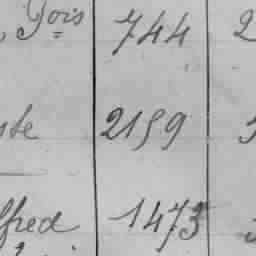 Jois 744 2
ste 2159
lfred 1473